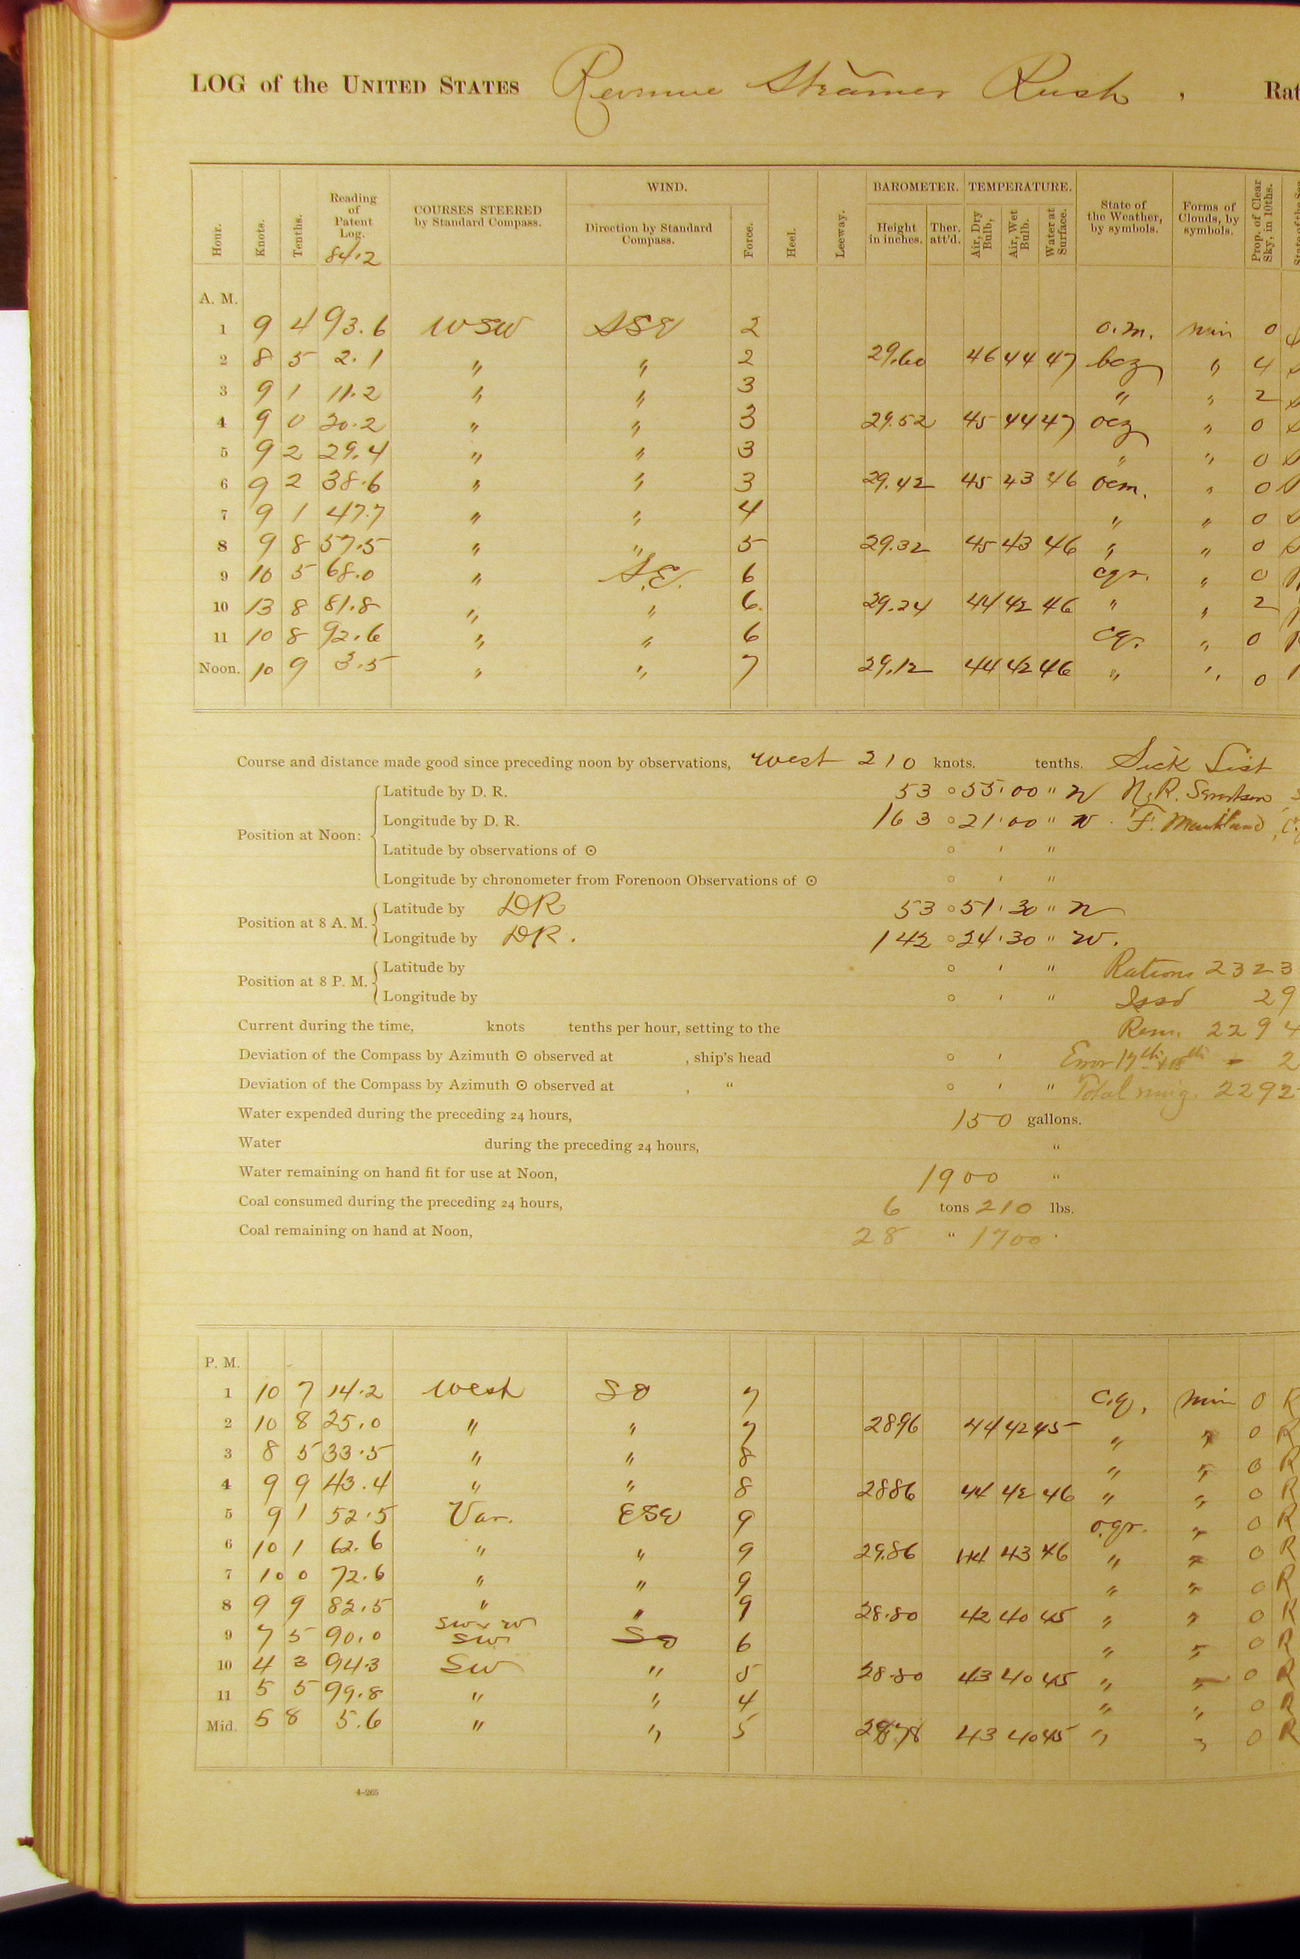 LOG of the UNITED STATES Revenue Steamer Rush, Rat
Hour. Knots. Tenths. Reading of Patent Log. COURSES STEERED by Standard Compass. WIND. Direction by Standard Compass. Force. Heel. Leeway. BAROMETER. Height in inches. Ther. att'd. TEMPERATURE. Air, Dry Bulb, Air, Wet Bulb. Water at Surface. State of the Weather, by symbols. Forms of Clouds, by symbols. Prop. of Clear Sky, in 10ths.
84.2
A. M.
1 9 4 93.6 WSW SSE 2 o.m. nim 0
2 8 5 2.1 " " 2 29.60 46 44 47 bcz " 4
3 9 1 11.2 " " 3 " " 2
4 9 0 20.2 " " 3 29.52 45 44 47 ocz " 0
5 9 2 29.4 " " 3 " " 0
6 9 2 38.6 " " 3 29.42 45 43 46 ocm. " 0
7 9 1 47.7 " " 4 " " 0
8 9 8 57.5 " " 5 29.32 45 43 46 " " 0
9 10 5 68.0 " S.E. 6 cqr. " 0
10 13 8 81.8 " " 6. 29.24 44 42 46 " " 2
11 10 8 92.6 " " 6 cq. " 0
Noon. 10 9 3.5 " " 7 29.12 44 42 46 " " 0
Course and distance made good since preceding noon by observations, West 210 knots. tenths. Sick List
Position at Noon: Latitude by D. R. 53 ° 55 ' 00 " N
Longitude by D. R. 163 ° 21 ' 00 " W. F.
Latitude by observations of ☉ ° ' "
Longitude by chronometer from Forenoon Observations of ☉ ° ' "
Position at 8 A. M. Latitude by DR 53 ° 51 ' 30 " N
Longitude by DR. 142 ° 24 ' 30 " W.
Position at 8 P. M. Latitude by ° ' " Rations 2323
Longitude by ° ' " Issd 29
Current during the time, knots tenths per hour, setting to the Rem. 2294
Deviation of the Compass by Azimuth ☉ observed at , ship's head ° ' Error 17th + 18th - 2
Deviation of the Compass by Azimuth ☉ observed at , " ° ' " Total rmg. 2292
Water expended during the preceding 24 hours, 150 gallons.
Water during the preceding 24 hours, "
Water remaining on hand fit for use at Noon, 1900 "
Coal consumed during the preceding 24 hours, 6 tons 210 lbs.
Coal remaining on hand at Noon, 28 " 1700
P. M.
1 10 7 14.2 West SE 7 c.q. nim 0 R
2 10 8 25.0 " " 7 2896 44 42 45 " " 0 R
3 8 5 33.5 " " 8 " " 0 R
4 9 9 43.4 " " 8 2886 44 42 46 " " 0 R
5 9 1 52.5 Var. ESE 9 o.qr. " 0 R
6 10 1 62.6 " " 9 29.86 44 43 46 " " 0 R
7 10 0 72.6 " " 9 " " 0 R
8 9 9 82.5 " " 9 28.80 42 40 45 " " 0 R
SW x W
9 7 5 90.0 SW SE 6 " " 0 R
10 4 3 94.3 SW " 5 28.80 43 40 45 " " 0 R
11 5 5 99.8 " " 4 " " 0 R
Mid. 5 8 5.6 " " 5 28.78 43 40 45 " " 0 R
4-265